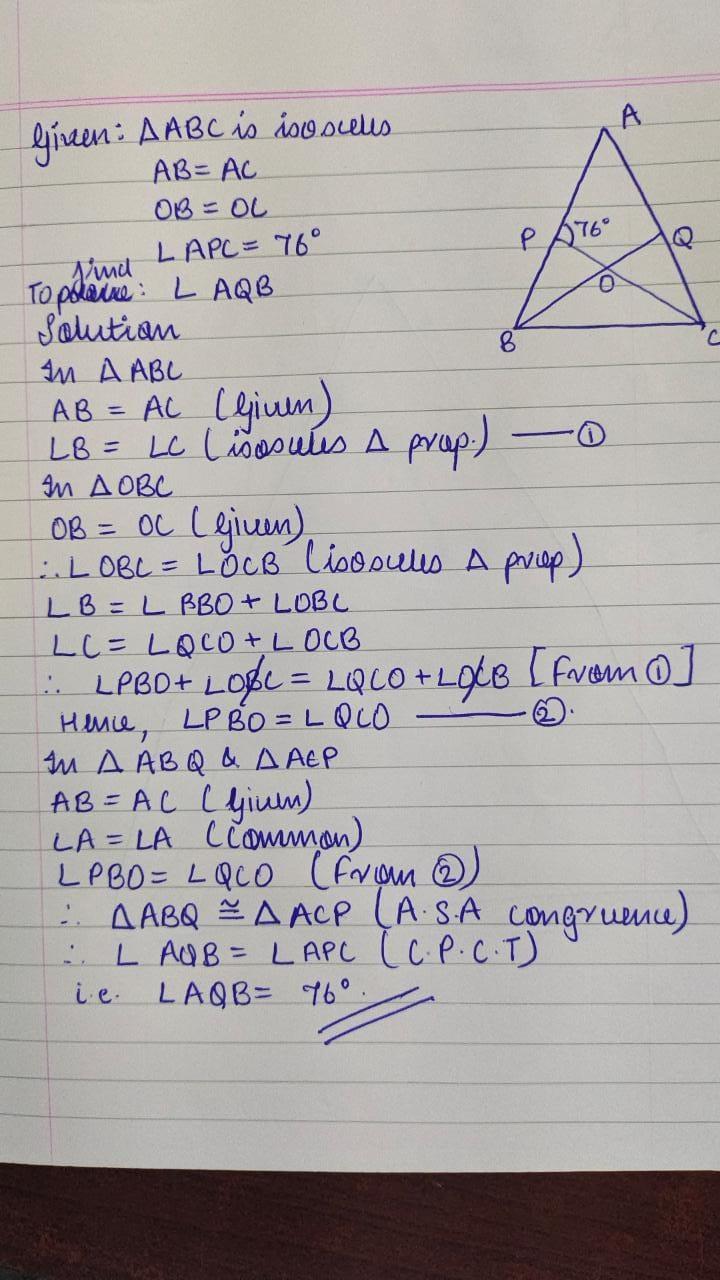 Given: △ABC is isosceles
AB = AC
OB = OC
∠APC = 76°
find
To : ∠AQB
Solution
In △ABC
AB = AC (Given)
∠B = ∠C (isosceles △ prop.) — ①
In △OBC
OB = OC (Given)
∴ ∠OBC = ∠OCB (isosceles △ prop)
∠B = ∠PBO + ∠OBC
∠C = ∠QCO + ∠OCB
∴ ∠PBO + ∠OBC = ∠QCO + ∠OCB [From ①]
Hence, ∠PBO = ∠QCO — ②.
In △ABQ & △ACP
AB = AC (Given)
∠A = ∠A (Common)
∠PBO = ∠QCO (From ②)
∴ △ABQ ≅ △ACP (A.S.A congruence)
∴ ∠AQB = ∠APC (C.P.C.T)
i.e. ∠AQB = 76°.
A
P 76° Q
O
B C